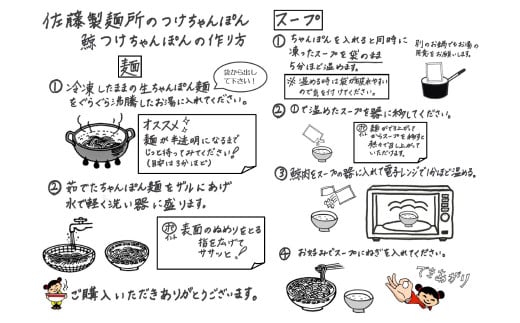 佐藤製麺所のつけちゃんぽん
鯨つけちゃんぽんの作り方
麺
① 冷凍したままの生ちゃんぽん麺
をぐらぐら沸騰したお湯に入れてください。
袋から出し
て下さい!
オススメ
麺が半透明になるまで
じっと待ってみてください!
(目安は5分ほど)
② 茹でたちゃんぽん麺をザルにあげ
水で軽く洗い器に盛ります。
ポイント 表面のぬめりをとる
指を広げて
ササッと!
ご購入いただきありがとうございます。
スープ
① ちゃんぽんを入れると同時に
凍ったスープを袋のまま
5分ほど温めます。
※温める時は袋が破れやすい
ので気を付けてください。
別のお鍋でもお湯の
用意をお願いします。
② ①で温めたスープを器に移してください。
ポイント 麺が
からスープを
③ 鯨肉をスープの器に入れて電子レンジで1分ほど温める。
④ お好みでスープにねぎを入れてください。
できあがり